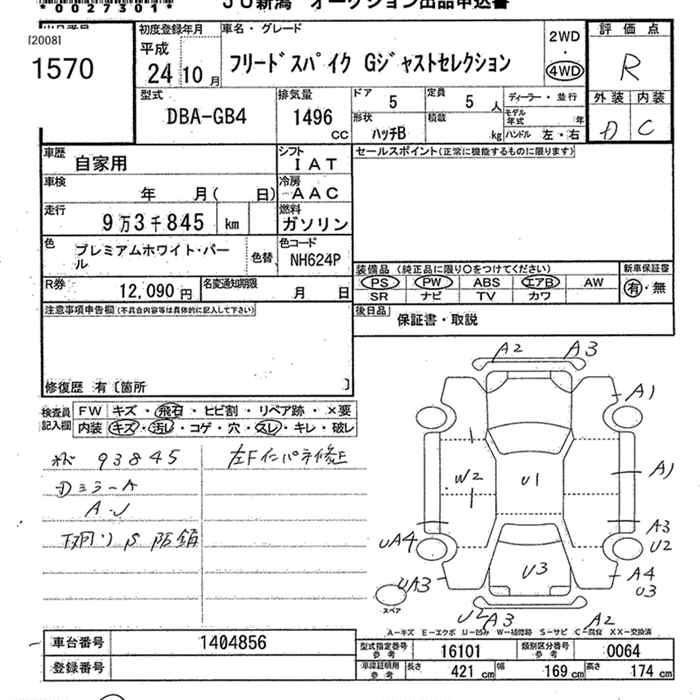 *0027301*
JU新潟 オークション出品申込書
[2008]
1570
初度登録年月
平成
24 10 月
車名・グレード
フリードスパイク Gジャストセレクション
2WD
・
4WD
評価点
R
型式
DBA-GB4
排気量
1496
cc
ドア
5
定員
5 人
形状
ハッチB
積載
kg
ディーラー・並行
モデル年式 年
ハンドル 左・右
外装 内装
D C
車歴
自家用
シフト
IAT
車検
年 月( 日)
冷房
AAC
走行
9万3千845 km
燃料
ガソリン
色
プレミアムホワイト・パール
色替
色コード
NH624P
R券
12,090 円
名変通知期限
月 日
セールスポイント(正常に機能するものに限ります)
装備品 (純正品に限り○をつけてください)
PS PW ABS エアB AW
SR ナビ TV カワ
新車保証書
有・無
後日品
保証書・取説
注意事項申告欄(不具合内容等は具体的に記入して下さい)
修復歴 有〔箇所 〕
検査員記入欄
FW キズ・飛石・ヒビ割・リペア跡・×要
内装 キズ・汚レ・コゲ・穴・スレ・キレ・破レ
93845
A・U
A2 A3
A1
W2
U1
A1
A3
U2
UA4
UA3
U3
A4
U3
スペア
U2
A3
A2
A-キズ E-エクボ U-凹み W-補修跡 S-サビ C-腐食 XX-交換済
車台番号 1404856
登録番号
型式指定番号 参考 16101
類別区分番号 参考 0064
車庫証明用 参考
長さ 421 cm
幅 169 cm
高さ 174 cm